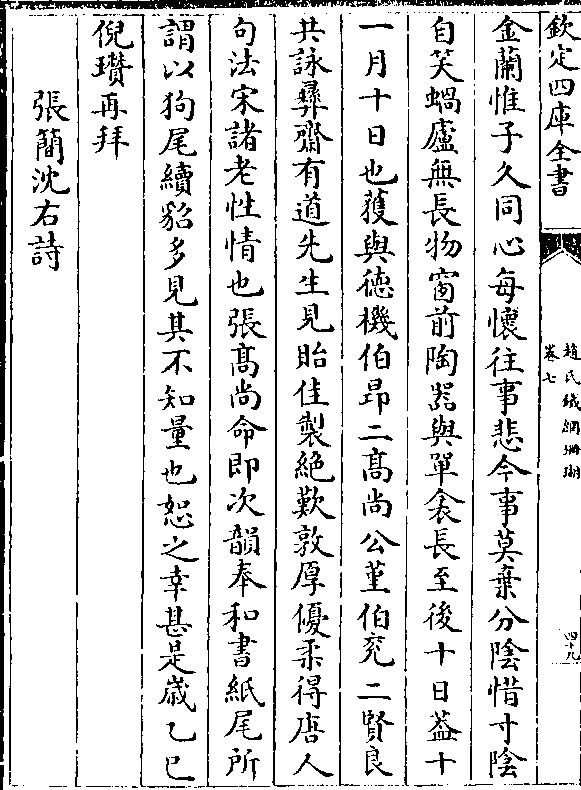 欽定四庫全書
趙氏鐵網珊瑚
卷七
四十九
金蘭惟子久同心每懷往事悲今事莫棄分陰惜寸陰
自笑蝸廬無長物窗前陶器與單衾長至後十日葢十
一月十日也獲與徳機伯昂二髙尚公堇伯兖二賢良
共詠彞齋有道先生見貽佳製絶歎敦厚優柔得唐人
句法宋諸老性情也張髙尚命即次韻奉和書紙尾所
謂以狗尾續貂多見其不知量也恕之幸甚是歳乙巳
倪瓚再拜
張簡沈右詩